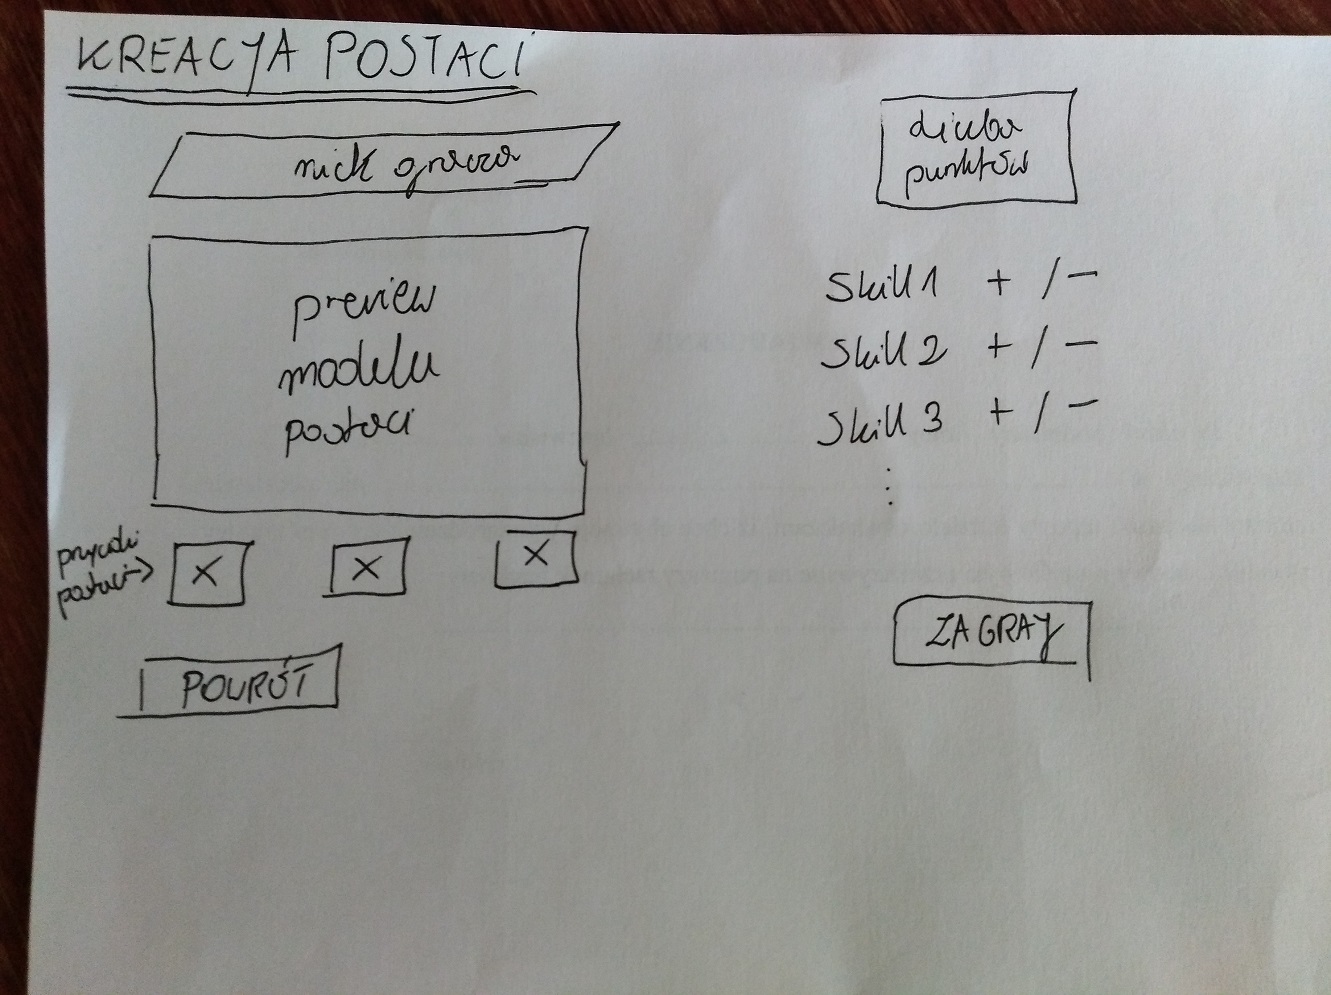 KREACJA POSTACI
nick gracza
preview
modelu
postaci
postaci
X X X
POWRÓT
liczba
punktów
Skill 1 + / -
Skill 2 + / -
Skill 3 + / -
ZAGRAJ